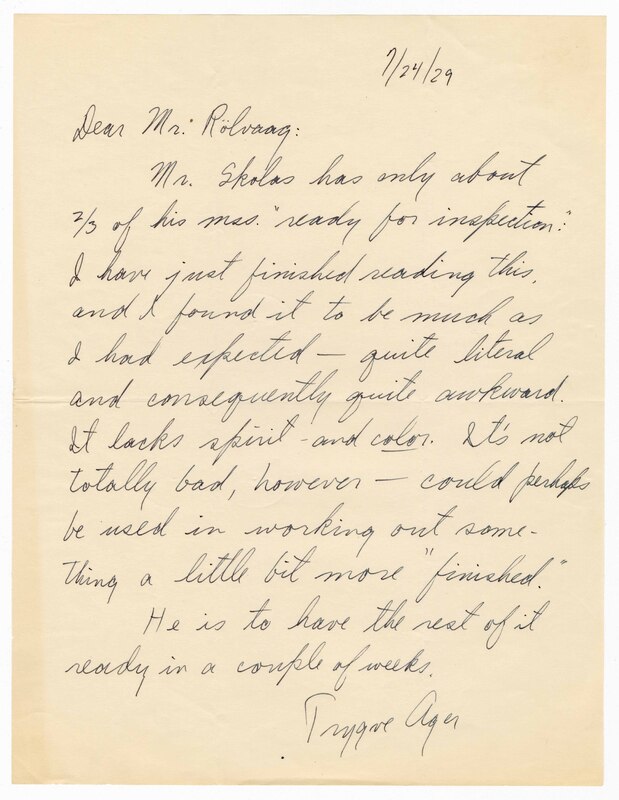 7/24/29
Dear Mr. Rölvaag:
Mr. Skolas has only about
2/3 of his mss. "ready for inspection."
I have just finished reading this,
and I found it to be much as
I had expected — quite literal
and consequently quite awkward.
It lacks spirit - and color. It's not
totally bad, however — could perhaps
be used in working out some-
thing a little bit more "finished."
He is to have the rest of it
ready in a couple of weeks.
Trygve Ager